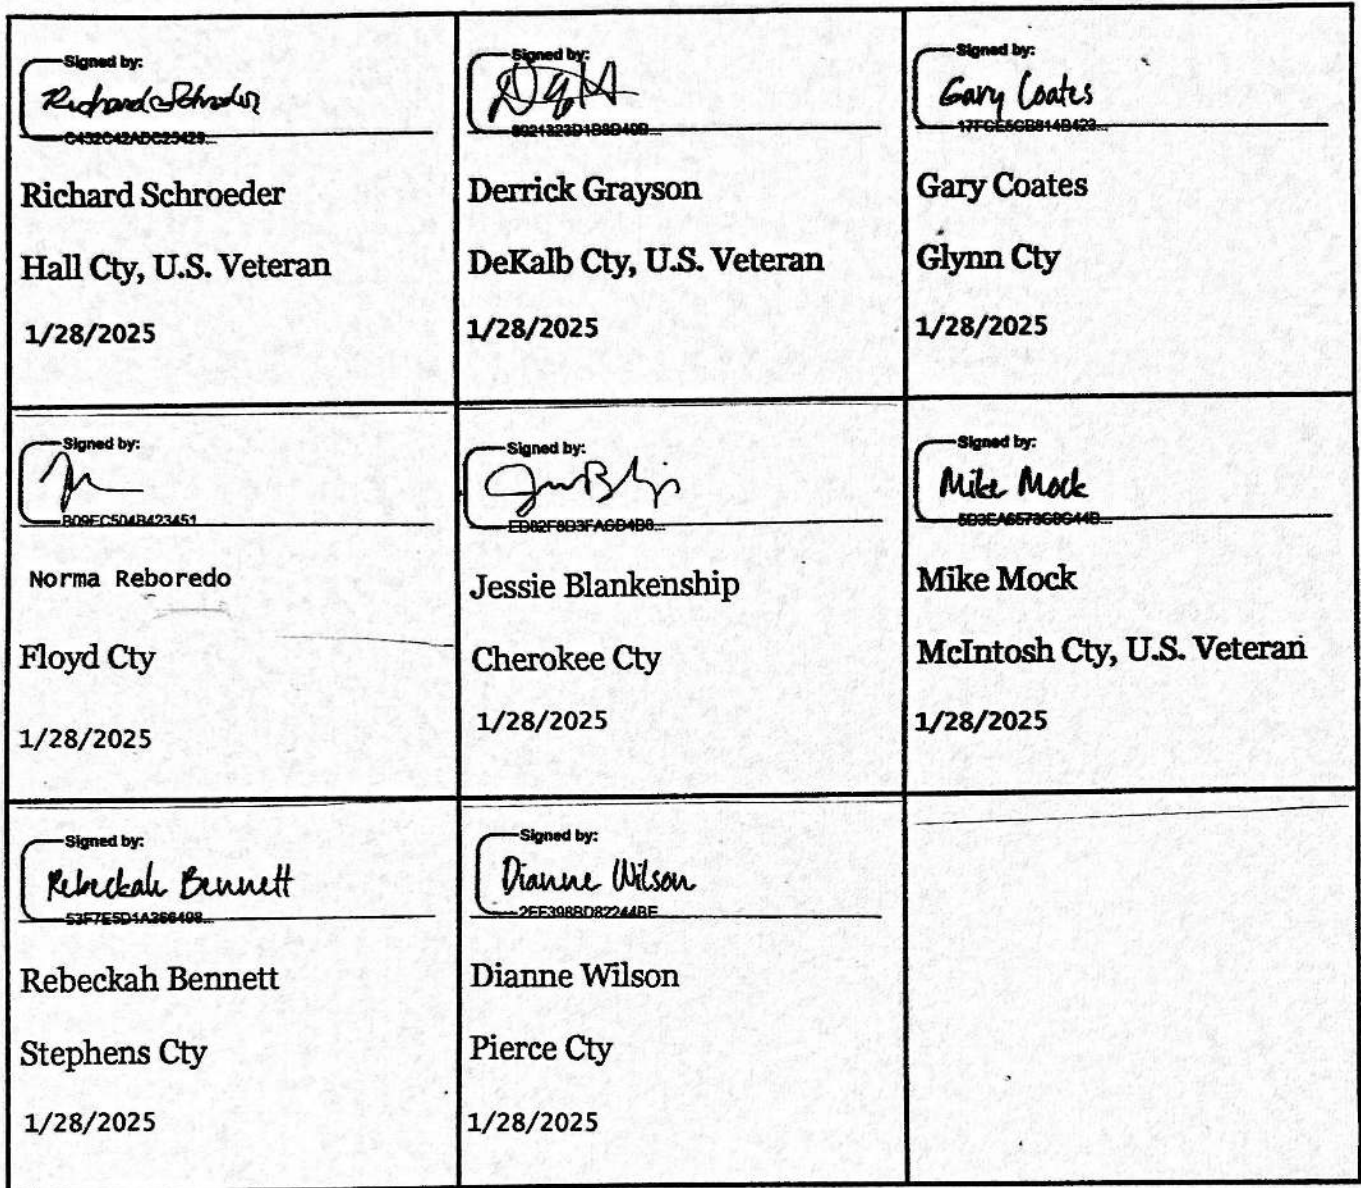 Signed by:
Richard Schroeder
Richard Schroeder
Hall Cty, U.S. Veteran
1/28/2025
Signed by:
Derrick Grayson
DeKalb Cty, U.S. Veteran
1/28/2025
Signed by:
Gary Coates
Gary Coates
Glynn Cty
1/28/2025
Signed by:
B09EC504B423451
Norma Reboredo
Floyd Cty
1/28/2025
Signed by:
Jessie Blankenship
Cherokee Cty
1/28/2025
Signed by:
Mike Mock
Mike Mock
McIntosh Cty, U.S. Veteran
1/28/2025
Signed by:
Rebeckah Bennett
Rebeckah Bennett
Stephens Cty
1/28/2025
Signed by:
Dianne Wilson
2EE398BD82244BE
Dianne Wilson
Pierce Cty
1/28/2025